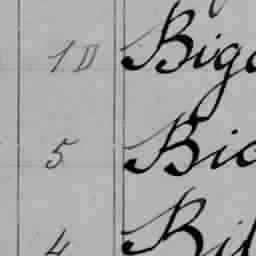 1D Big
5 Bic
4 Bil